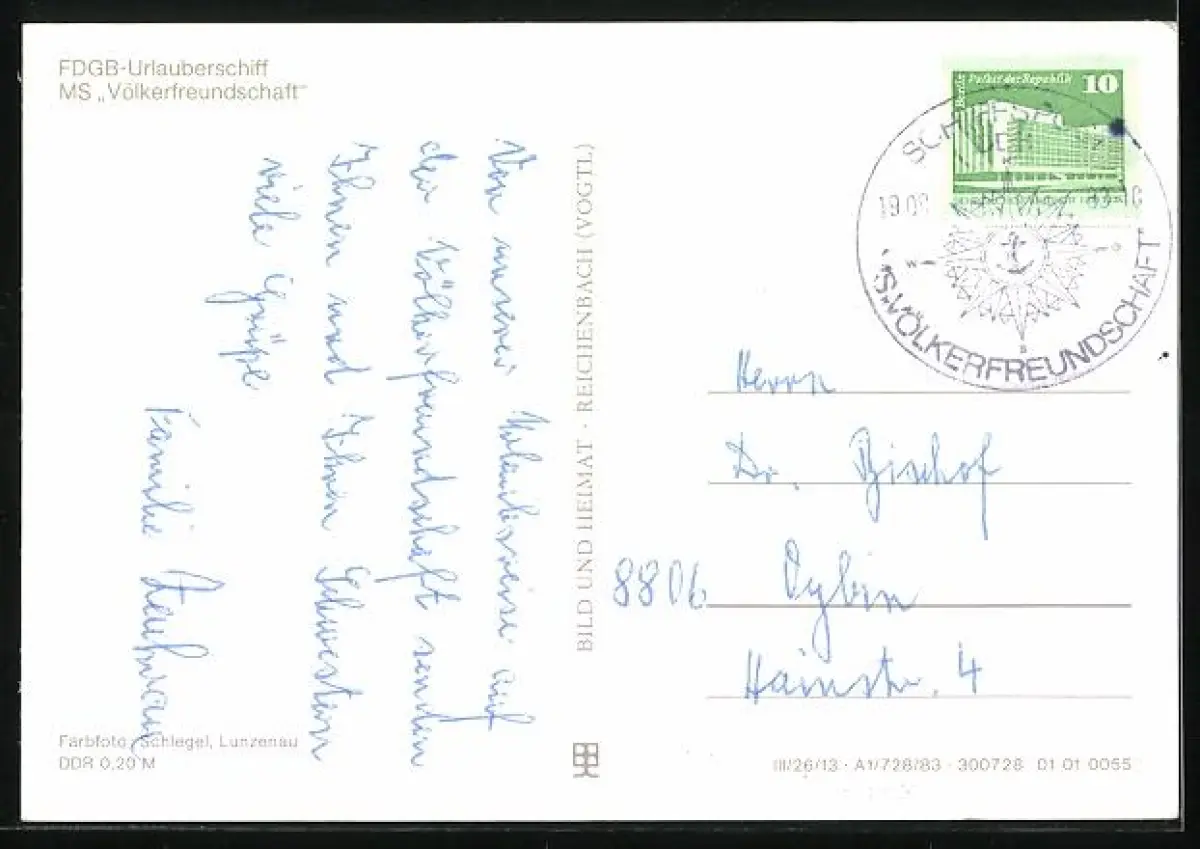 FDGB-Urlauberschiff
MS „Völkerfreundschaft"
Von unserer Urlaubsreise auf
der Völkerfreundschaft senden
Ihnen und Ihren Schwestern
viele Grüße
Familie
BILD UND HEIMAT · REICHENBACH (VOGTL)
Berlin Palast der Republik 10
"VÖLKERFREUNDSCHAFT"
W
S
Herrn
Dr. Bischof
8806 Oybin
Hainstr. 4
Farbfoto: Schlegel, Lunzenau
DDR 0,20 M
III/26/13 · A1/728/83 · 300728 01 01 0055